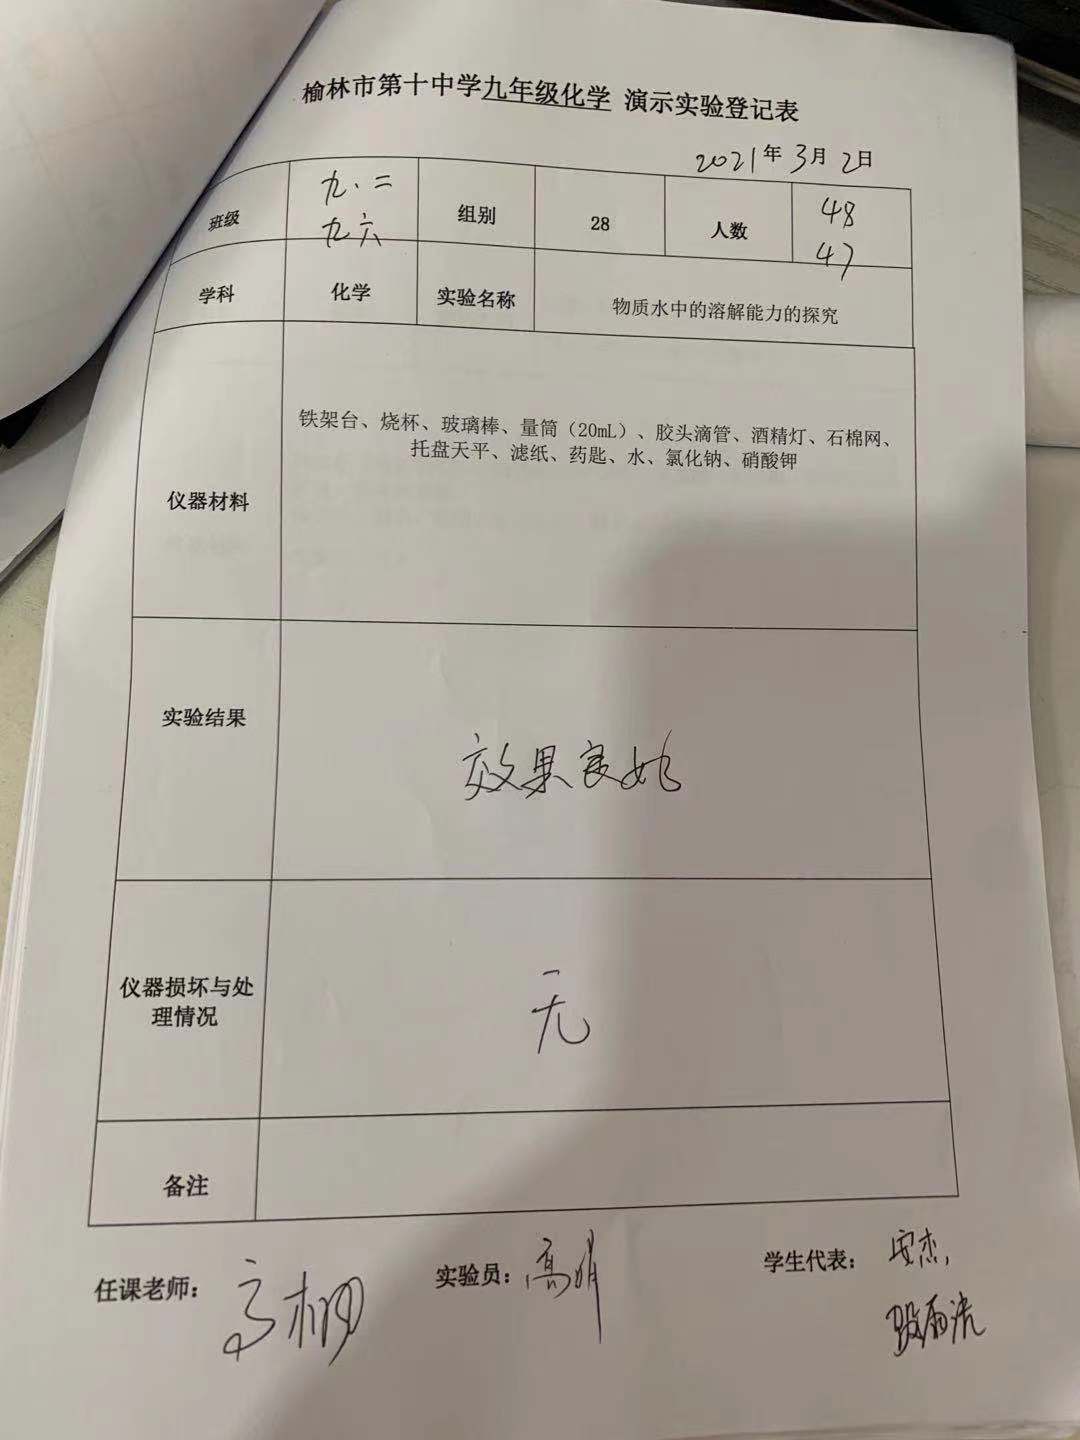 榆林市第十中学九年级化学 演示实验登记表
2021年3月2日
班级
九.二
九六
组别
28
人数
48
47
学科
化学
实验名称
物质水中的溶解能力的探究
仪器材料
铁架台、烧杯、玻璃棒、量筒（20mL）、胶头滴管、酒精灯、石棉网、
托盘天平、滤纸、药匙、水、氯化钠、硝酸钾
实验结果
效果良好
仪器损坏与处
理情况
无
备注
任课老师：
实验员：高娟
学生代表：安杰,
段雨浩